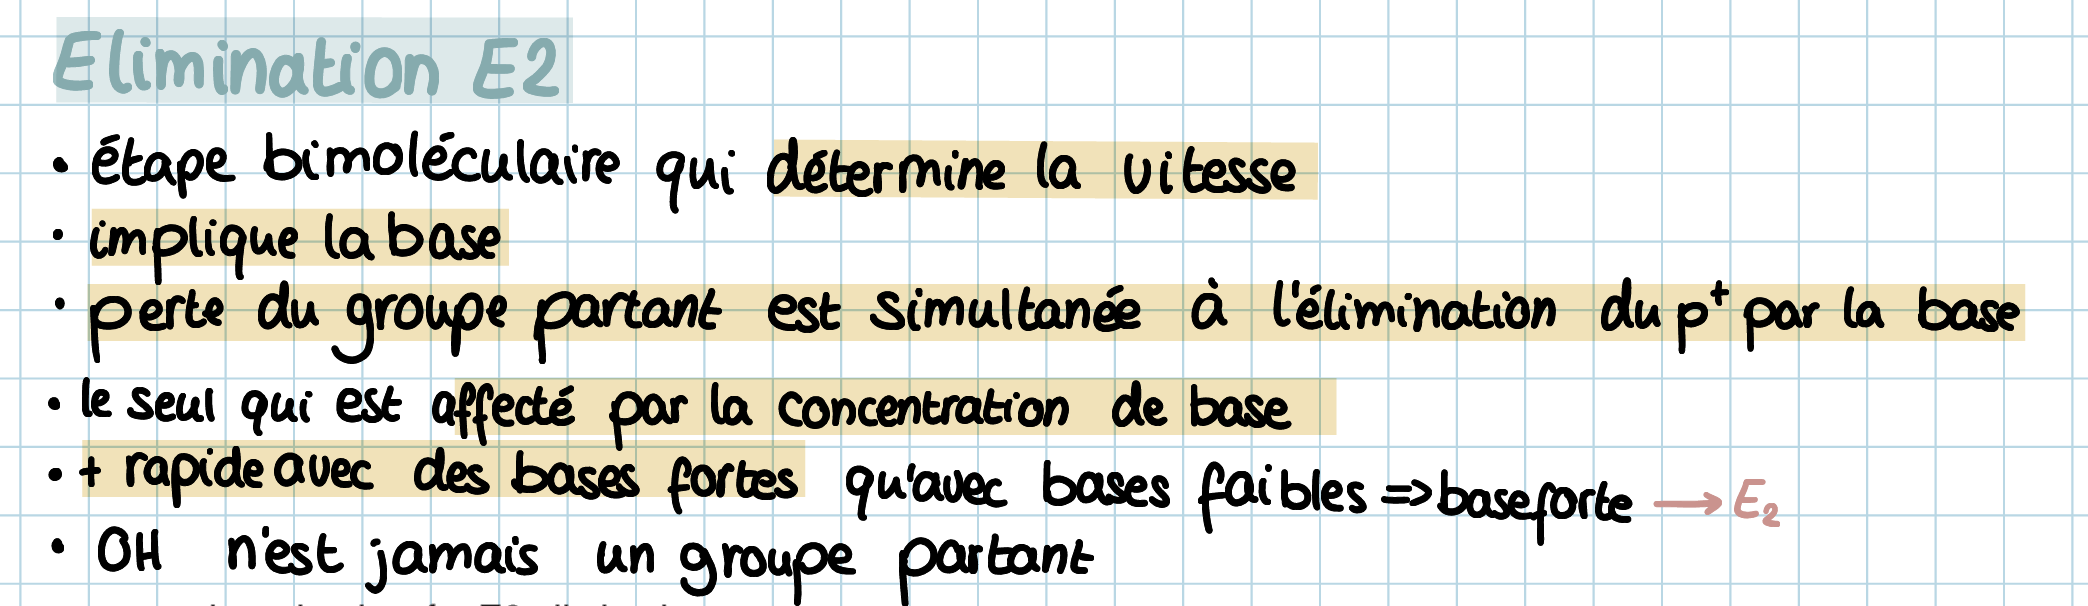 Elimination E2
• étape bimoléculaire qui détermine la vitesse
• implique la base
• perte du groupe partant est simultanée à l'élimination du p⁺ par la base
• le seul qui est affecté par la concentration de base
• + rapide avec des bases fortes qu'avec bases faibles => base forte → E₂
• OH n'est jamais un groupe partant